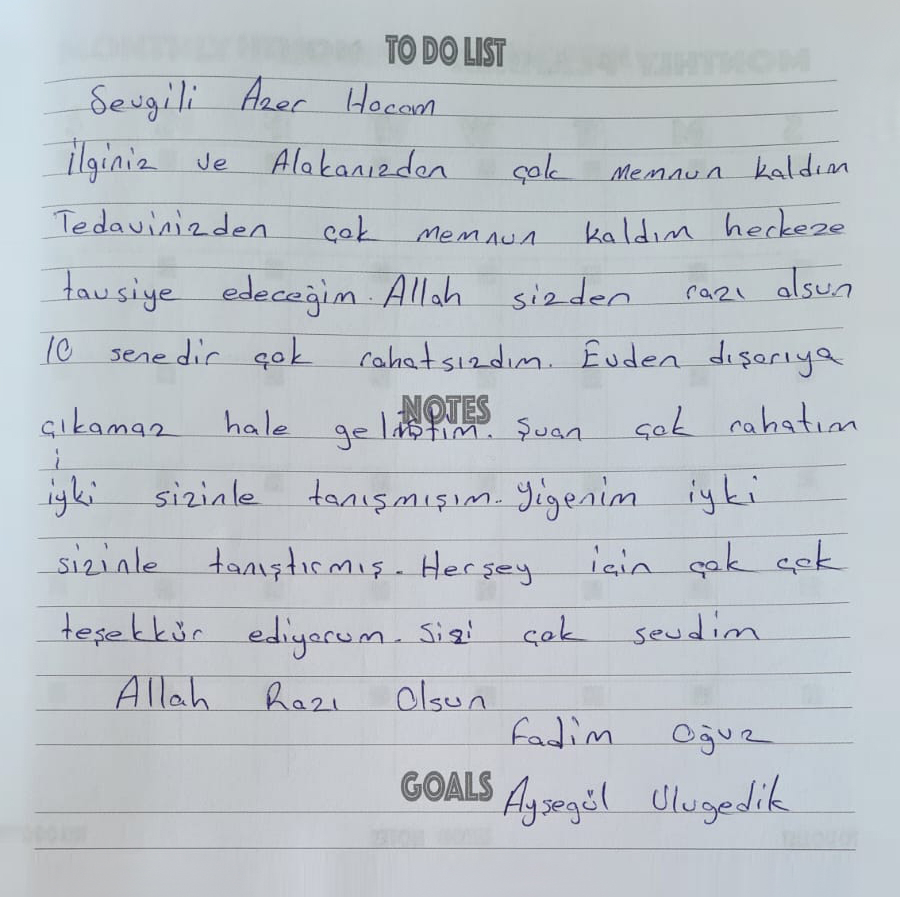 TO DO LIST
Sevgili Azer Hocam
ilginiz ve Alakanızdan çok memnun kaldım
Tedavinizden çok memnun kaldım herkeze
tavsiye edeceğim. Allah sizden razı olsun
10 senedir çok rahatsızdım. Evden dışarıya
çıkamaz hale gelmiştim. Şuan çok rahatım
NOTES
iyki sizinle tanışmışım. Yigenim iyki
sizinle tanıştırmış. Herşey için çok çok
teşekkür ediyorum. Sizi çok sevdim
Allah Razı Olsun
Fadim Oğuz
GOALS
Ayşegül Ulugedik